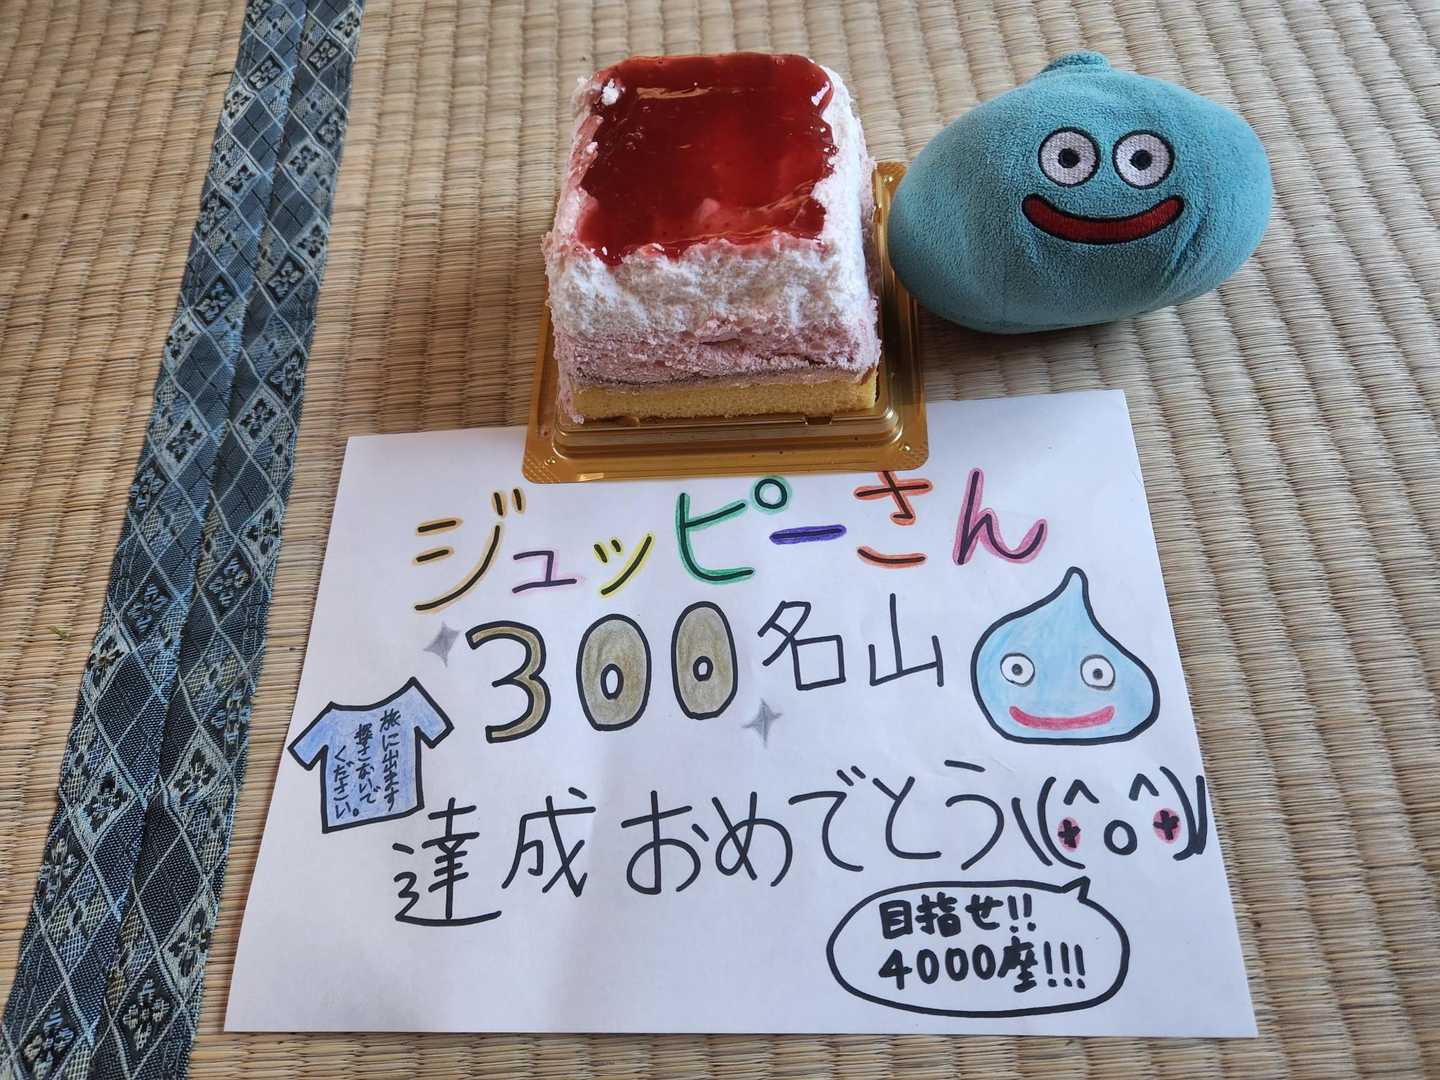 ジュッピーさん
300名山
旅に出ます
探さないで
ください。
達成おめでとう\(^o^)/
目指せ!!
4000座!!!